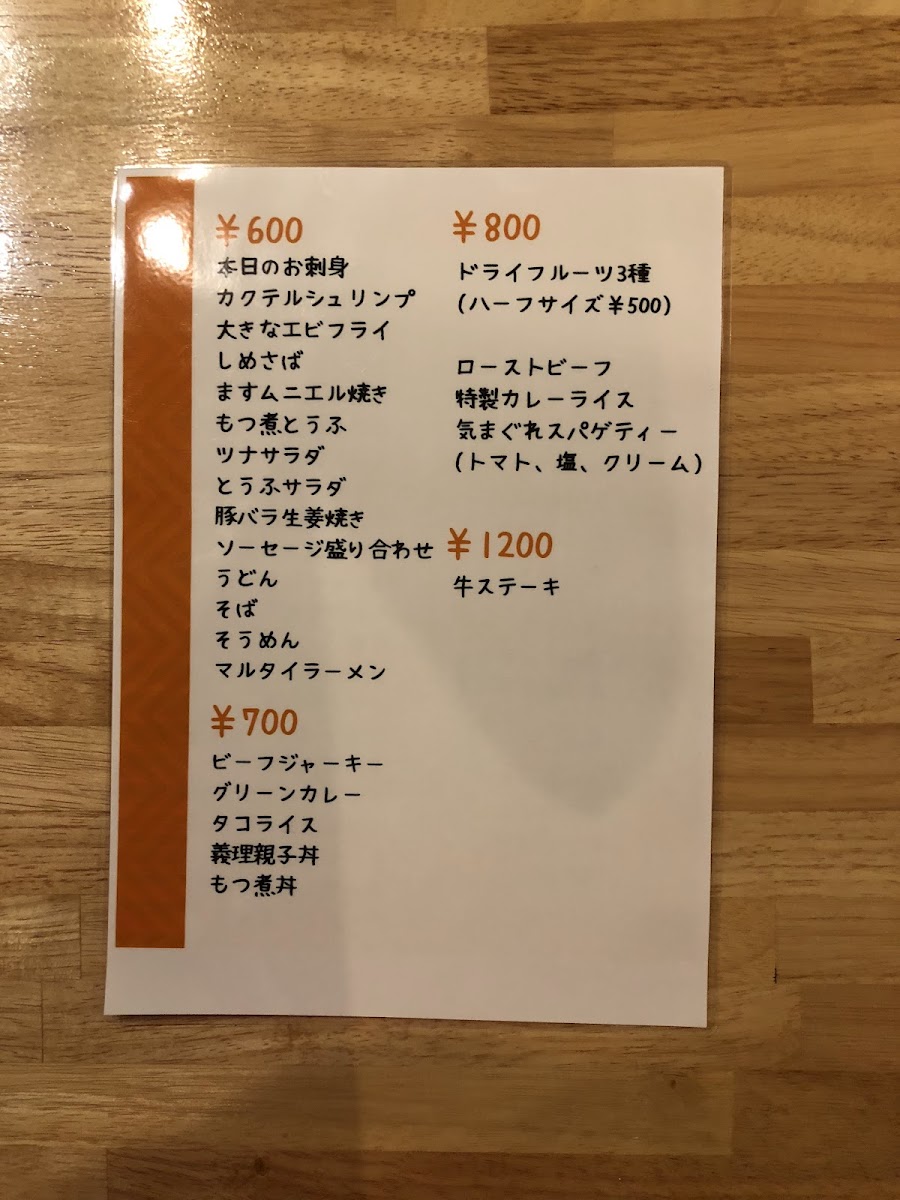 ¥600
本日のお刺身
カクテルシュリンプ
大きなエビフライ
しめさば
ますムニエル焼き
もつ煮とうふ
ツナサラダ
とうふサラダ
豚バラ生姜焼き
ソーセージ盛り合わせ
うどん
そば
そうめん
マルタイラーメン
¥700
ビーフジャーキー
グリーンカレー
タコライス
義理親子丼
もつ煮丼
¥800
ドライフルーツ3種
(ハーフサイズ¥500)
ローストビーフ
特製カレーライス
気まぐれスパゲティー
(トマト、塩、クリーム)
¥1200
牛ステーキ